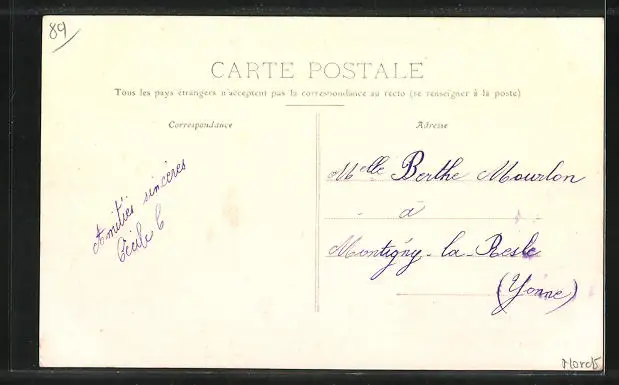 89
CARTE POSTALE
Tous les pays étrangers n'acceptent pas la correspondance au recto (se renseigner à la poste)
Correspondance
Amitiés sincères
Cécile C
Adresse
Melle Berthe Mourlon
à
Montigny-la-Resle
(Yonne)